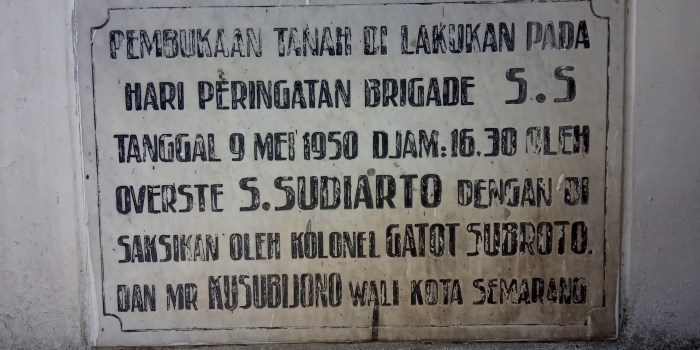 PEMBUKAAN TANAH DI LAKUKAN PADA
HARI PERINGATAN BRIGADE S.S
TANGGAL 9 MEI 1950 DJAM: 16.30 OLEH
OVERSTE S.SUDIARTO DENGAN DI
SAKSIKAN OLEH KOLONEL GATOT SUBROTO.
DAN MR KUSUBIJONO WALI KOTA SEMARANG